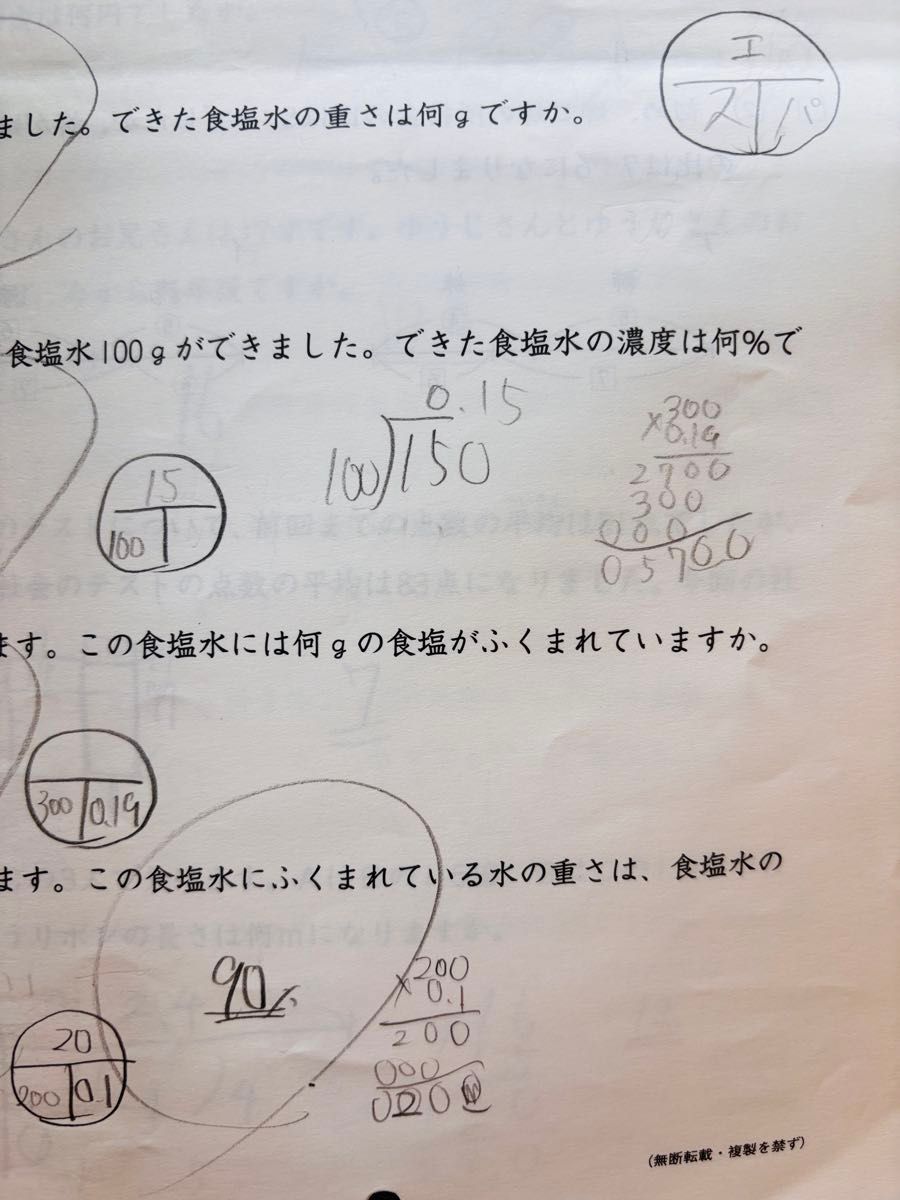 エ
ス パ
ました。できた食塩水の重さは何gですか。
食塩水100gができました。できた食塩水の濃度は何%で
0.15
100 150
300
×0.19
2700
300
000
05700
15
100
ます。この食塩水には何gの食塩がふくまれていますか。
300 0.19
ます。この食塩水にふくまれている水の重さは、食塩水の
90%
200
×0.1
200
000
20
200 0.1
(無断転載・複製を禁ず)